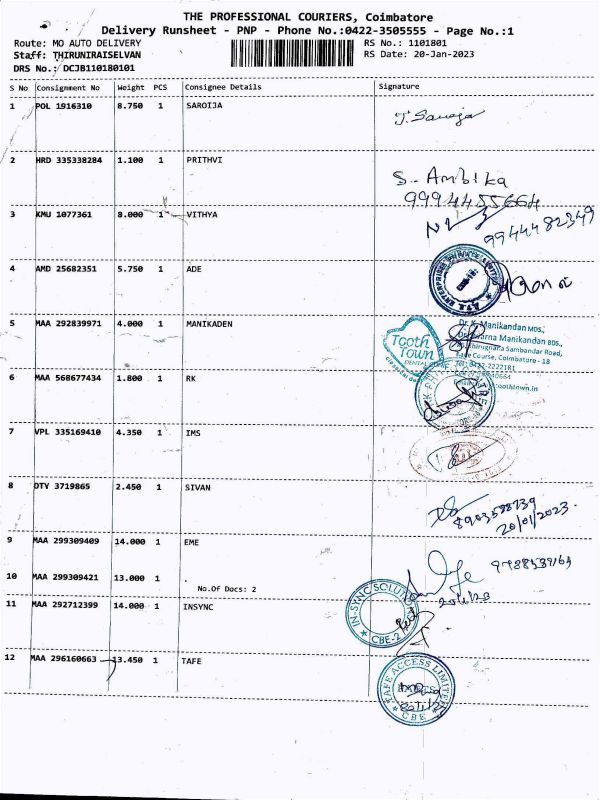 THE PROFESSIONAL COURIERS, Coimbatore
Delivery Runsheet - PNP - Phone No.:0422-3505555 - Page No.:1
Route: MO AUTO DELIVERY RS No.: 1101801
Staff: THIRUNIRAISELVAN RS Date: 20-Jan-2023
DRS No.: DCJB110180101
S No Consignment No Weight PCS Consignee Details Signature
1 POL 1916310 8.750 1 SAROIJA
T. Saroja
2 HRD 335338284 1.100 1 PRITHVI
S. Ambika
9994455664
3 KMU 1077361 8.000 1 VITHYA
9944482349
4 AMD 25682351 5.750 1 ADE
5 MAA 292839971 4.000 1 MANIKADEN
Tooth Town
DENTAL CLINIC
Dr. K. Manikandan MDS.,
Manikandan BDS.,
Thirugnana Sambandar Road,
Race Course, Coimbatore - 18
6 MAA 568677434 1.800 1 RK
7 VPL 335169410 4.350 1 IMS
8 DTV 3719865 2.450 1 SIVAN
8903588739
20/01/2023.
9 MAA 299309409 14.000 1 EME
10 MAA 299309421 13.000 1
No.Of Docs: 2
11 MAA 292712399 14.000 1 INSYNC
IN-SYNC SOLUTIO
CBE-2
12 MAA 296160663 13.450 1 TAFE
TAFE ACCESS LIMITED
CBE